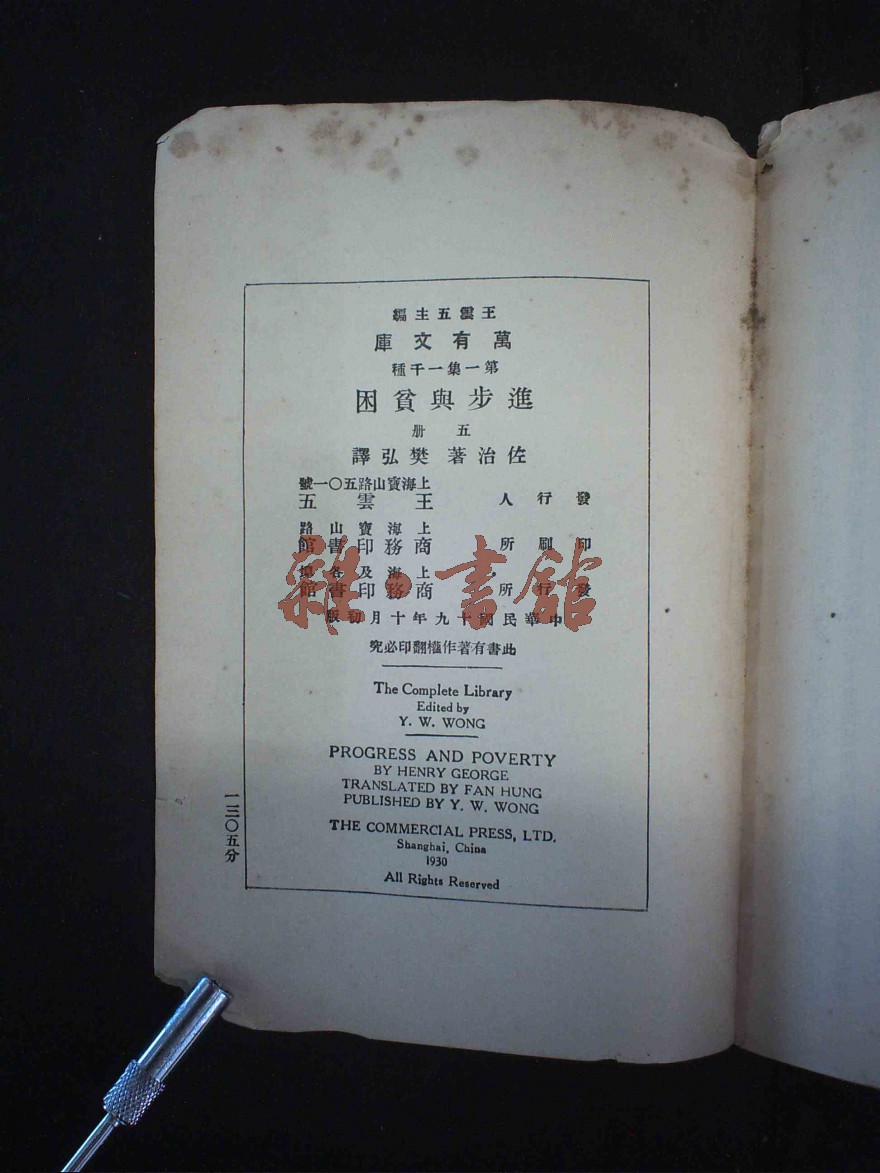 王雲五主編
萬有文庫
第一集一千種
進步與貧困
五册
佐治著 樊弘譯
上海寶山路五〇一號
發行人 王雲五
上海寶山路
印刷所 商務印書館
上海及各埠
發行所 商務印書館
中華民國十九年十月初版
此書有著作權翻印必究
The Complete Library
Edited by
Y. W. WONG
PROGRESS AND POVERTY
BY HENRY GEORGE
TRANSLATED BY FAN HUNG
PUBLISHED BY Y. W. WONG
THE COMMERCIAL PRESS, LTD.
Shanghai, China
1930
All Rights Reserved
一二〇五分
雜·書館